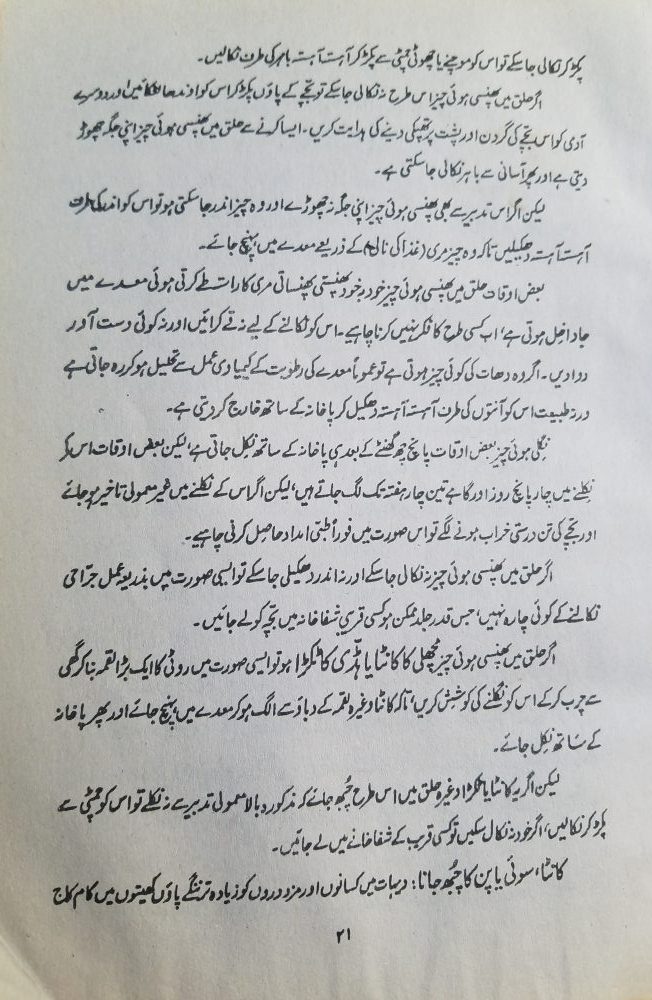 پکڑ کر نکالی جا سکے تو اس کو موچنے یا چھوٹی چمٹی سے پکڑ کر آہستہ آہستہ باہر کی طرف نکالیں۔
اگر حلق میں پھنسی ہوئی چیز اس طرح نہ نکالی جا سکے تو بچّے کے پاؤں پکڑ کر اس کو اوندھا لٹکائیں اور دوسرے
آدمی کو اس بچّے کی گردن اور پشت پر تھپکی دینے کی ہدایت کریں۔ ایسا کرنے سے حلق میں پھنسی ہوئی چیز اپنی جگہ چھوڑ
دیتی ہے اور پھر آسانی سے باہر نکالی جا سکتی ہے۔
لیکن اگر اس تدبیر سے بھی پھنسی ہوئی چیز اپنی جگہ نہ چھوڑے اور وہ چیز اندر جا سکتی ہو تو اس کو اندر کی طرف
آہستہ آہستہ دھکیلیں تاکہ وہ چیز مری (غذا کی نالی) کے ذریعے معدے میں پہنچ جائے۔
بعض اوقات حلق میں پھنسی ہوئی چیز خود بہ خود پھنستی پھنساتی مری کا راستہ طے کرتی ہوئی معدے میں
جا داخل ہوتی ہے، اب کسی طرح کا فکر نہیں کرنا چاہیے۔ اس کو نکالنے کے لیے نہ قے کرائیں اور نہ کوئی دست آور
دوا دیں۔ اگر وہ دھات کی کوئی چیز ہوتی ہے تو عموماً معدے کی رطوبت کے کیمیاوی عمل سے تحلیل ہو کر رہ جاتی ہے
ورنہ طبیعت اس کو آنتوں کی طرف آہستہ آہستہ دھکیل کر پاخانہ کے ساتھ خارج کر دیتی ہے۔
نگلی ہوئی چیز بعض اوقات پانچ چھ گھنٹے کے بعد ہی پاخانہ کے ساتھ نکل جاتی ہے، لیکن بعض اوقات اس کو
نکلنے میں چار پانچ روز اور گاہے تین چار ہفتہ تک لگ جاتے ہیں، لیکن اگر اس کے نکلنے میں غیر معمولی تاخیر ہو جائے
اور بچّے کی تن درستی خراب ہونے لگے تو اس صورت میں فوراً طبّی امداد حاصل کرنی چاہیے۔
اگر حلق میں پھنسی ہوئی چیز نہ نکالی جا سکے اور نہ اندر دھکیلی جا سکے تو ایسی صورت میں بذریعہ عمل جرّاحی
نکالنے کے کوئی چارہ نہیں، جس قدر جلد ممکن ہو کسی قریبی شفاخانہ میں بچّہ کو لے جائیں۔
اگر حلق میں پھنسی ہوئی چیز مچھلی کا کانٹا یا ہڈّی کا ٹکڑا ہو تو ایسی صورت میں روٹی کا ایک بڑا لقمہ بنا کر گھی
سے چرب کر کے اس کو نگلنے کی کوشش کریں، تاکہ کانٹا وغیرہ لقمہ کے دباؤ سے الگ ہو کر معدے میں پہنچ جائے اور پھر پاخانہ
کے ساتھ نکل جائے۔
لیکن اگر یہ کانٹا یا ٹکڑا وغیرہ حلق میں اس طرح چُبھ جائے کہ مذکورہ بالا معمولی تدبیر سے نہ نکلے تو اس کو چمٹی سے
پکڑ کر نکالیں، اگر خود نہ نکال سکیں تو کسی قریب کے شفاخانے میں لے جائیں۔
کانٹا، سوئی یا پن کا چبھ جانا: دیہات میں کسانوں اور مزدوروں کو زیادہ تر ننگے پاؤں کھیتوں میں کام کاج
۲۱